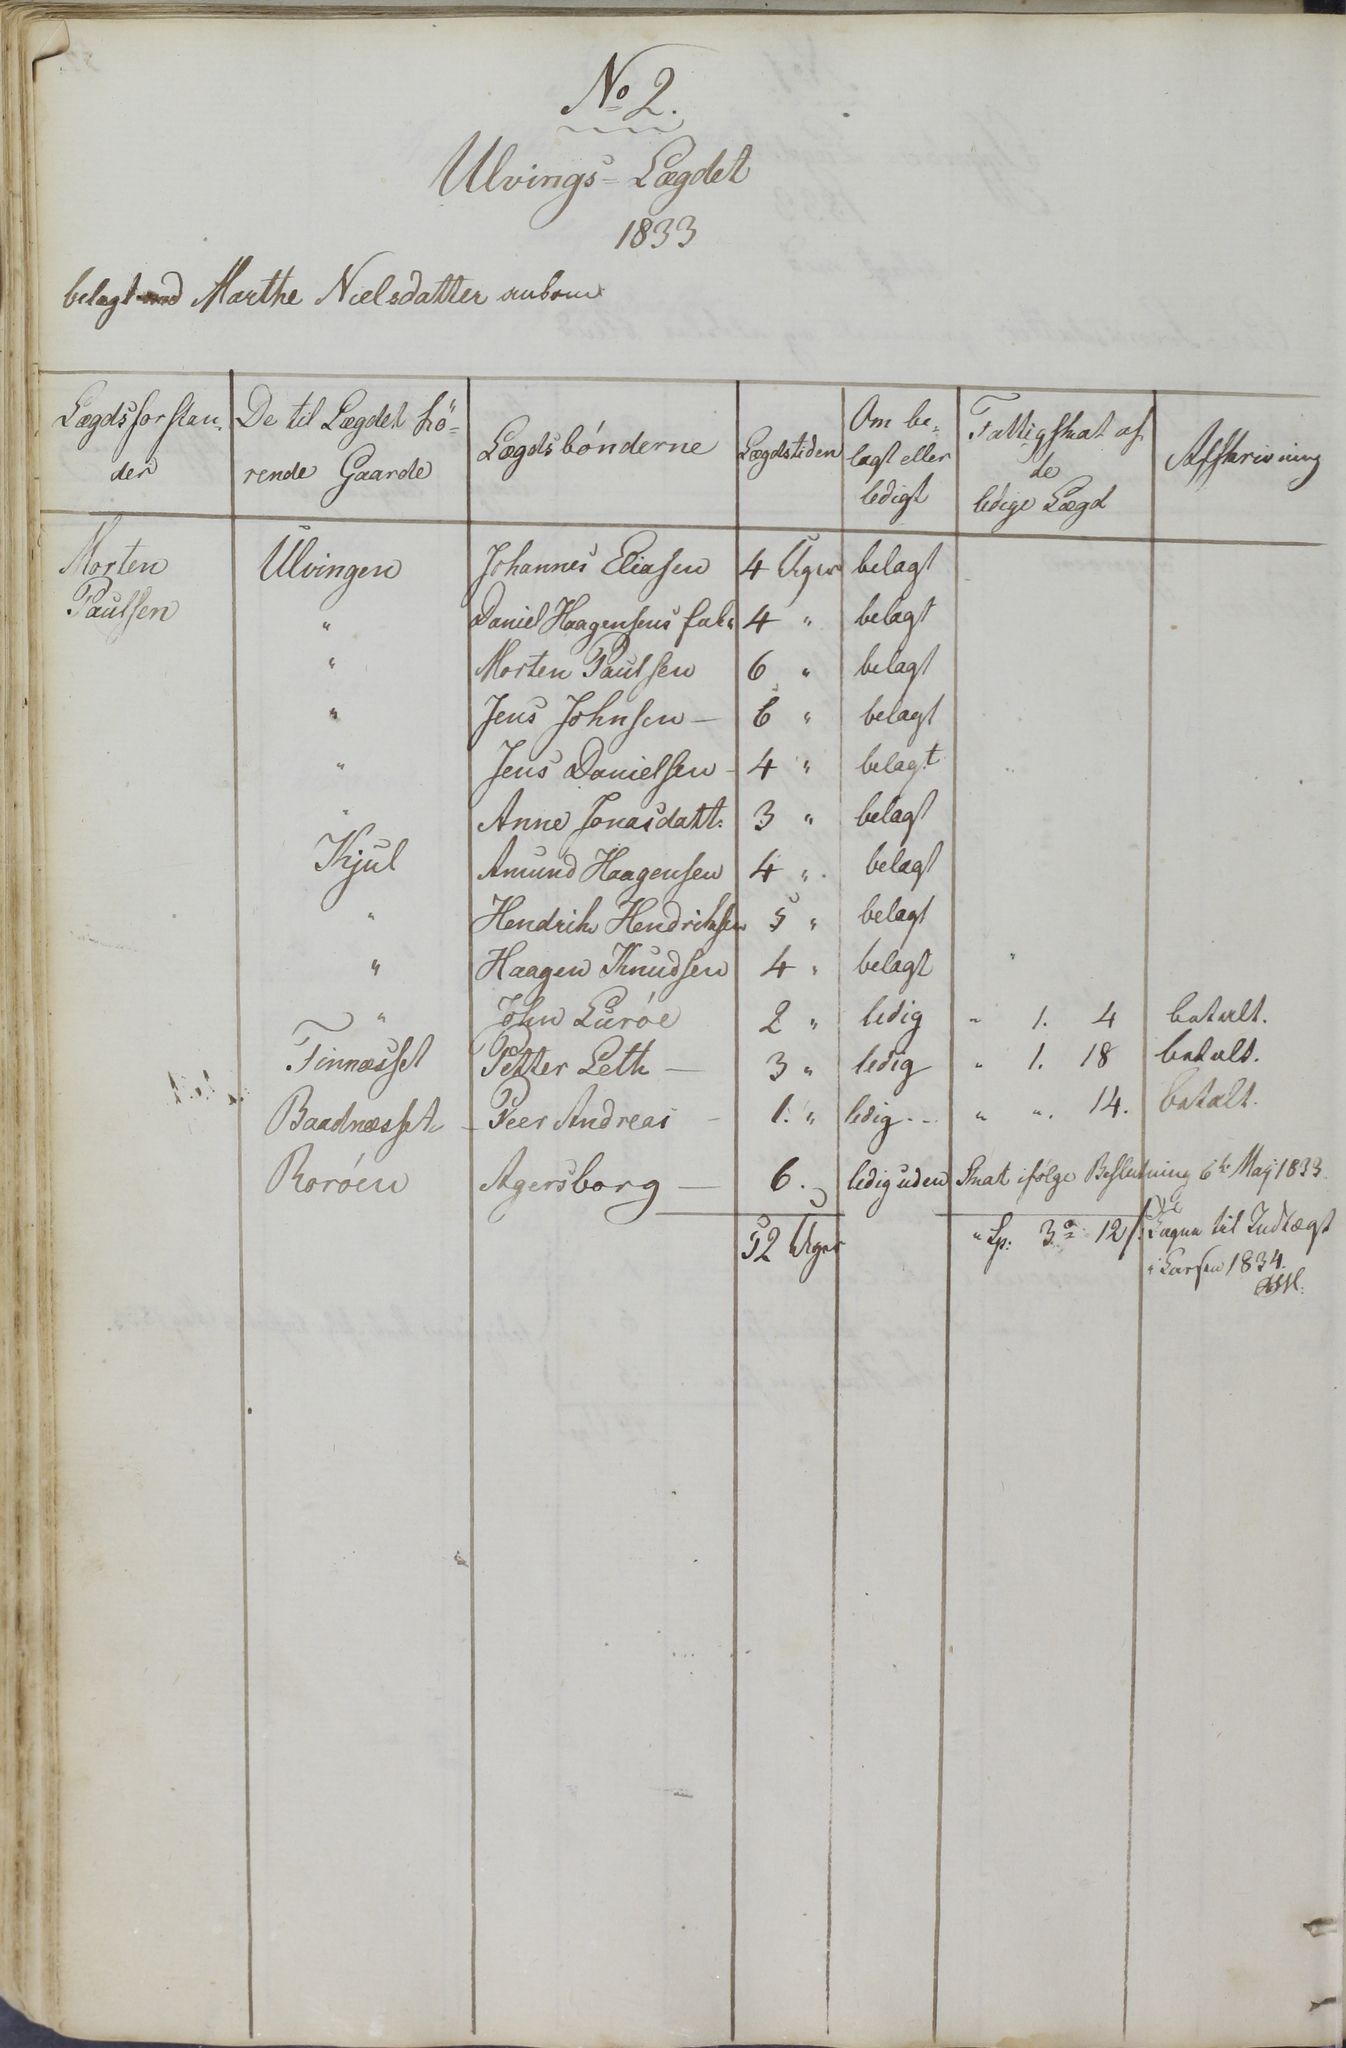 No 2.
Ulvings-Lægdet
1833
belagt med Marthe Nielsdatter
Lægdsforstan-
der
De til Lægdet hö-
rende Gaarde
Lægdsbönderne
Lægdstiden
Om be-
lagt eller
ledigt
Fattigskat af
de
ledige Lægd
Afskrivning
Morten Ulvingen Johannes Eliasen 4 Uger belagt
Paulsen " Daniel Haagensens 4 " belagt
" Morten Paulsen 6 " belagt
" Jens Johnsen — 6 " belagt
" Jens Danielsen - 4 " belagt
" Anne Jonasdatt: 3 " belagt
Kjul Amund Haagensen 4 " belagt
" Hendrik Hendriksen 5 " belagt
" Haagen Knudsen 4 " belagt
" John Luröe 2 " ledig " 1. 4 betalt.
Finnæsset Petter Leth — 3 " ledig " 1. 18 betalt.
Baadnæsset - Peer Andreas - 1. " ledig -- " ". 14. betalt.
Roröen Agersborg — 6. " ledig uden Skat ifölge Beslutning 6te Maj 1833.
52 Uger " Sp. 3 12 til Indtægt
1834.